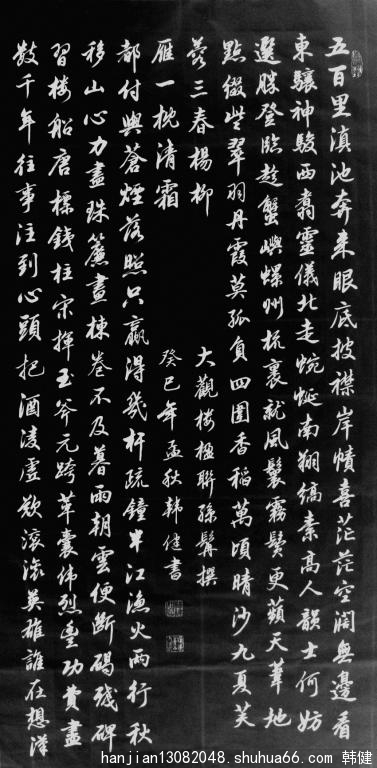 五百里滇池奔来眼底披襟岸幘喜茫茫空闊無邊看
東驤神駿西翥靈儀北走蜿蜒南翔縞素高人韻士何妨
選勝登臨趁蟹嶼螺州梳裹就風鬟霧鬢更蘋天葦地
點綴些翠羽丹霞莫孤負四圍香稻萬頃晴沙九夏芙
蓉三春楊柳
數千年往事注到心頭把酒凌虛歎滾滾英雄誰在想漢
習樓船唐標錢柱宋揮玉斧元跨革囊偉烈豐功費盡
移山心力盡珠簾畫棟卷不及暮雨朝雲便斷碣殘碑
都付與蒼煙落照只贏得幾杵疏鐘半江漁火兩行秋
雁一枕清霜
大觀樓楹聯孫髯撰
癸巳年孟秋韓健書
hanjian13082048.shuhua66.com 韩健